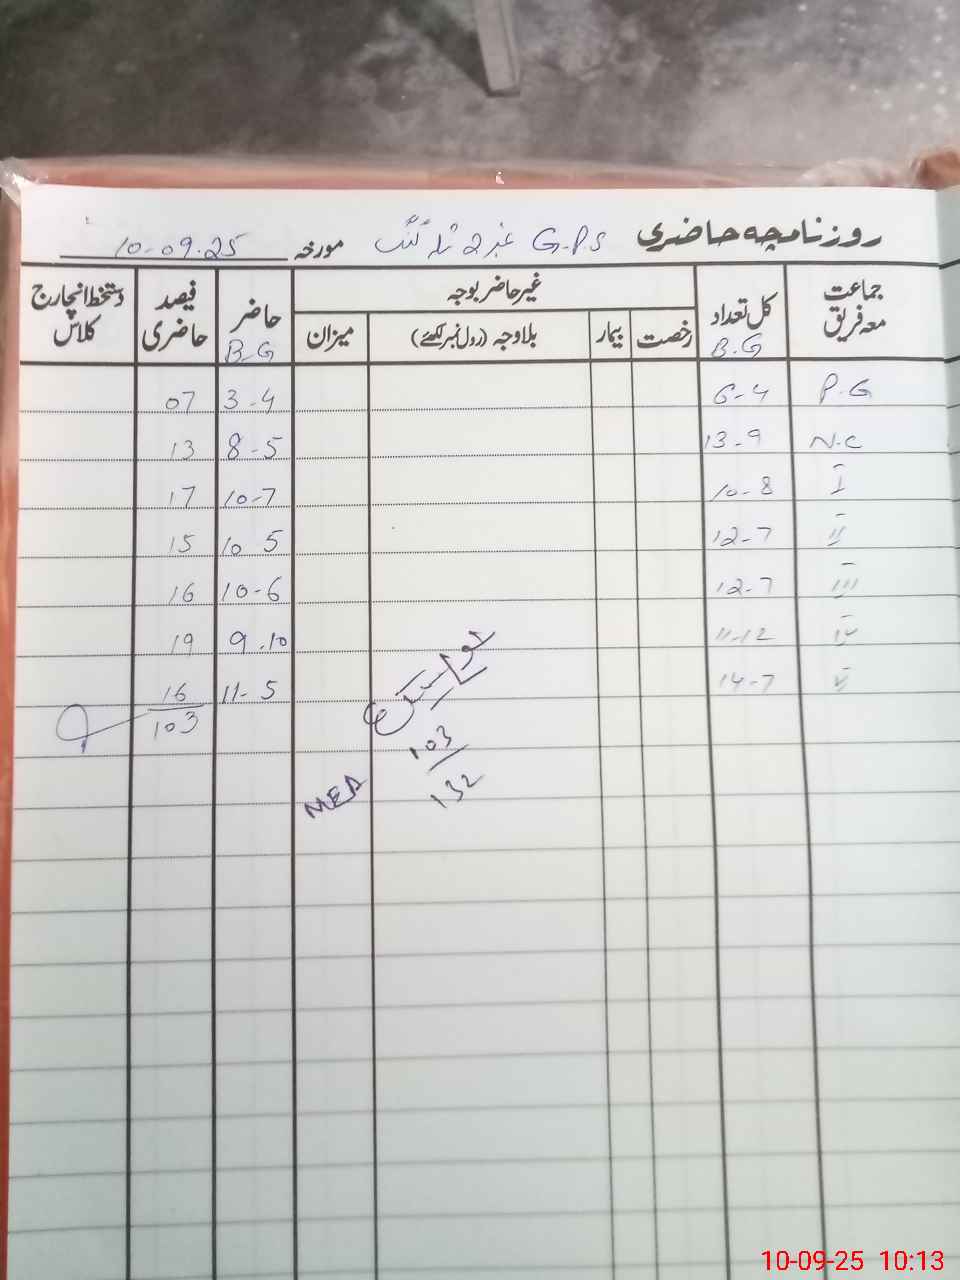 روزنامچہ حاضری G.P.S نمبر 2 مورخہ 10-09-25
جماعت معہ فریق
کل تعداد B.G
غیر حاضر بوجہ
رخصت بیمار بلاوجہ (رول نمبر لکھئے) میزان
حاضر B.G
فیصد حاضری
دستخط انچارج کلاس
P.G 6-4 3-4 07
N.C 13-9 8-5 13
I 10-8 10-7 17
II 12-7 10 5 15
III 12-7 10-6 16
IV 11-12 9.10 19
V 14-7 11-5 16
103
103
132
MEA
10-09-25 10:13